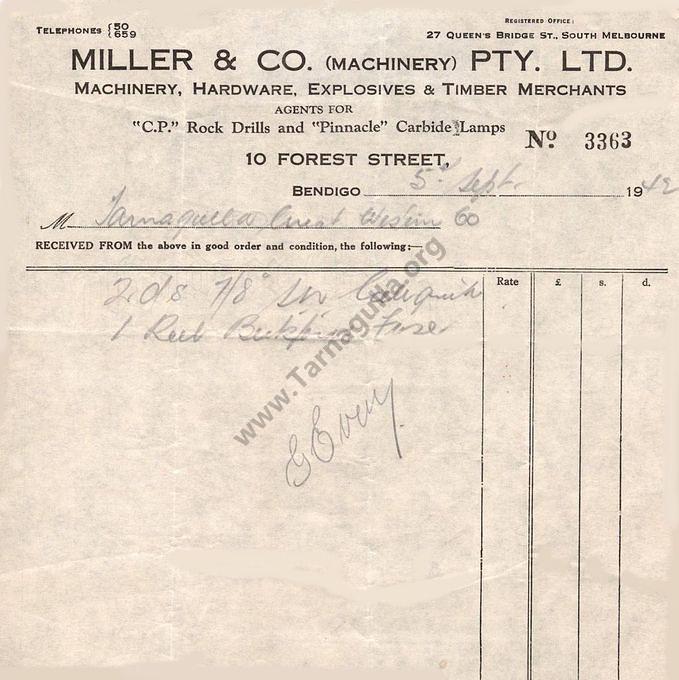 TELEPHONES { 50
659
REGISTERED OFFICE:
27 QUEEN'S BRIDGE ST., SOUTH MELBOURNE
MILLER & CO. (MACHINERY) PTY. LTD.
MACHINERY, HARDWARE, EXPLOSIVES & TIMBER MERCHANTS
AGENTS FOR
"C.P." Rock Drills and "Pinnacle" Carbide Lamps
No. 3363
10 FOREST STREET,
BENDIGO 5th Sept. 1942
M Tarnagulla Great Western Co
RECEIVED FROM the above in good order and condition, the following:—
Rate £ s. d.
2 7/8"
1 Reel Fuse
www.Tarnagulla.org